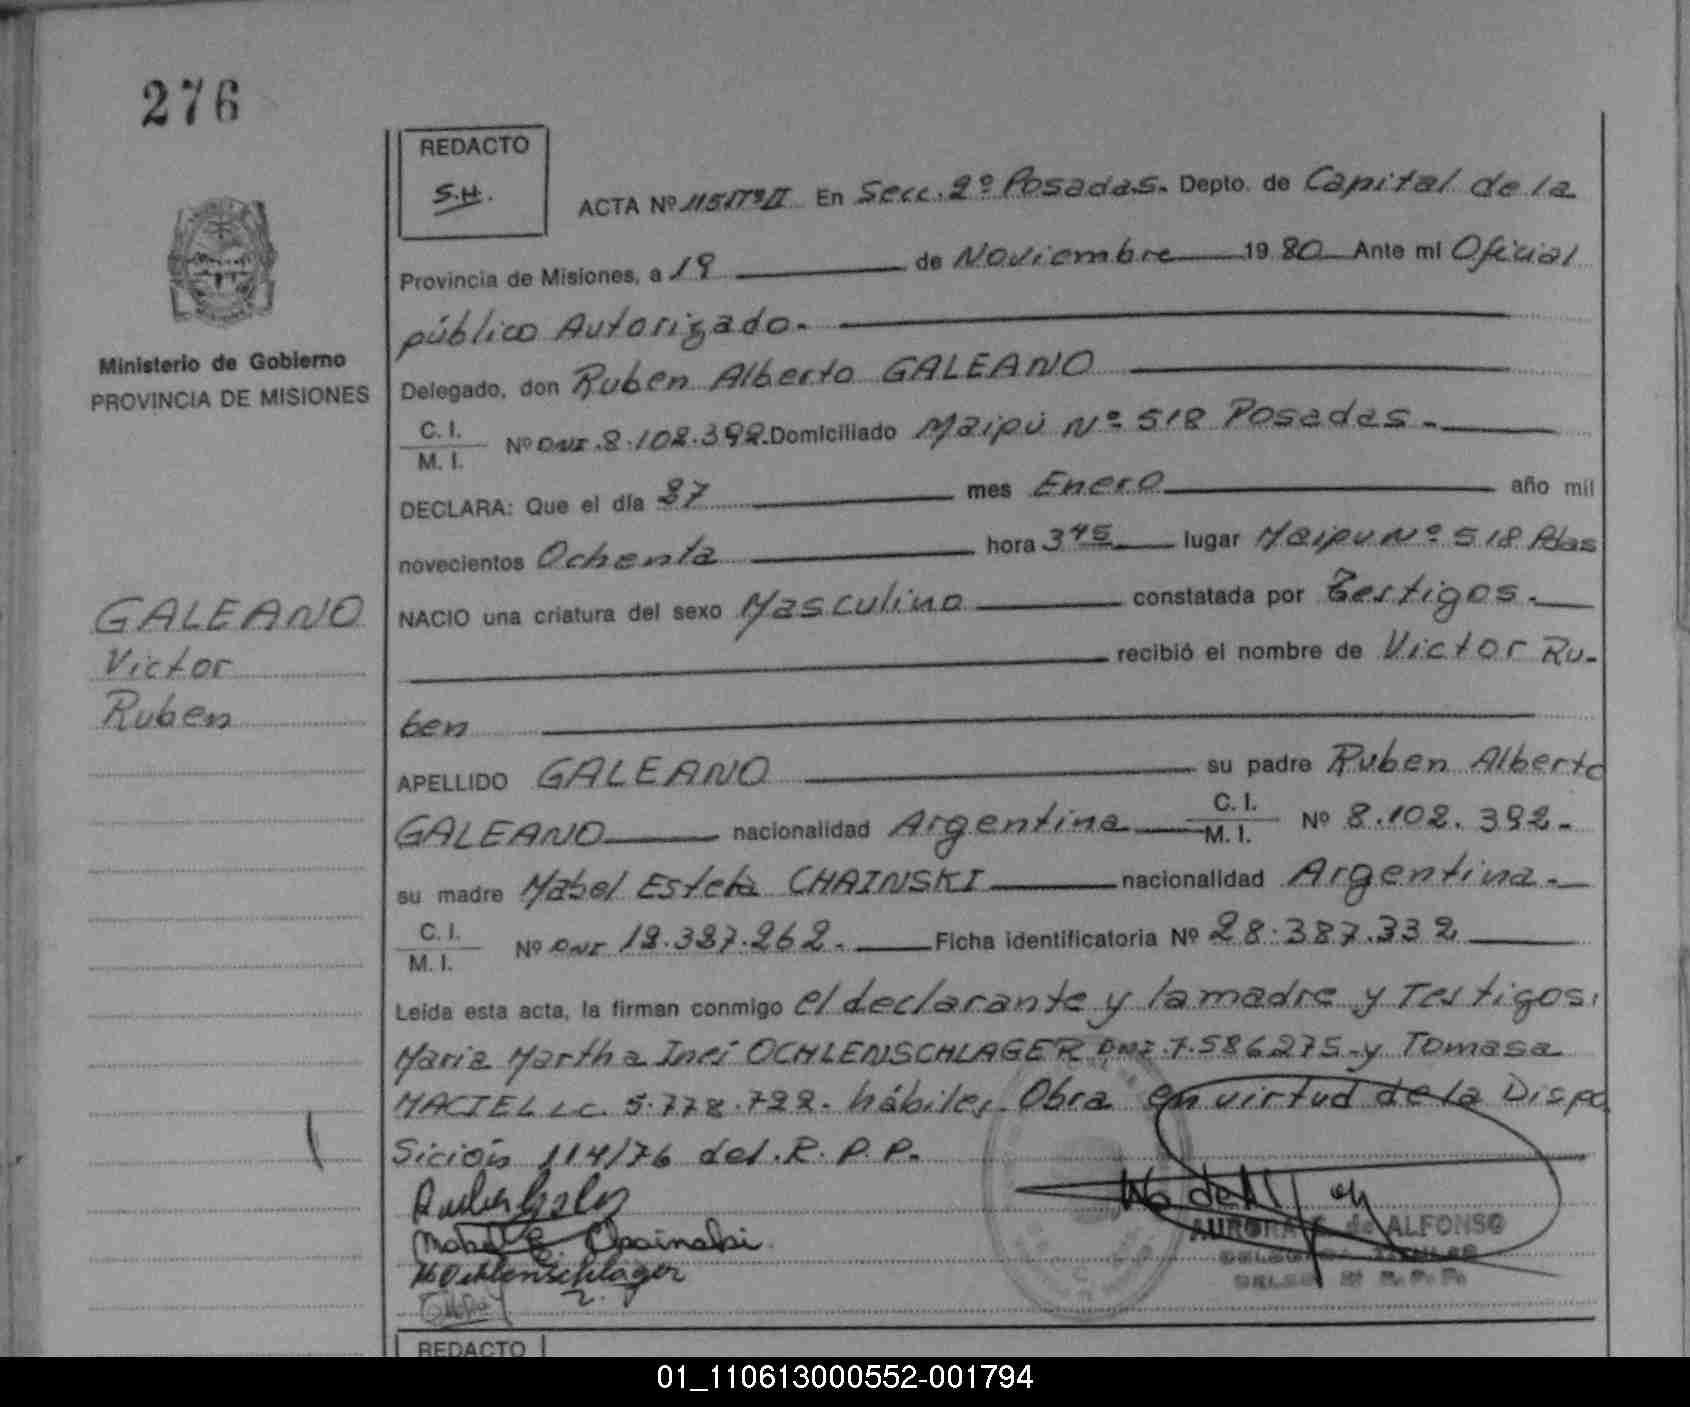 276
REDACTO
S.H.
ACTA Nº 115 Tº II En Secc. 2º Posadas. Depto. de Capital de la
Provincia de Misiones, a 19 de Noviembre 19 80 Ante mi Oficial
público Autorizado.
Ministerio de Gobierno
PROVINCIA DE MISIONES
Delegado, don Ruben Alberto GALEANO
C. I.
M. I. Nº DNI. 8.102.392. Domiciliado Maipú Nº 518 Posadas.
DECLARA: Que el día 27 mes Enero año mil
novecientos Ochenta hora 3 45 lugar Maipu Nº 518 Pdas
NACIO una criatura del sexo Masculino constatada por Testigos.
recibió el nombre de Victor Ru-
ben
GALEANO
Victor
Ruben
APELLIDO GALEANO su padre Ruben Alberto
GALEANO nacionalidad Argentina C. I. M. I. Nº 8.102.392.
su madre Mabel Estela CHAINSKI nacionalidad Argentina.
C. I.
M. I. Nº DNI 12.327.262. Ficha identificatoria Nº 28.387.332
Leída esta acta, la firman conmigo el declarante y la madre y Testigos:
Maria Martha Ines OCHLENSCHLAGER DNI. 7.586275. y Tomasa
MACIEL L.C. 5.778.722. hábiles. Obra en virtud de la Dispo
sición 114/76 del. R. P. P.
AURORA de ALFONSO
DELEGADA TITULAR
REDACTO
01_110613000552-001794